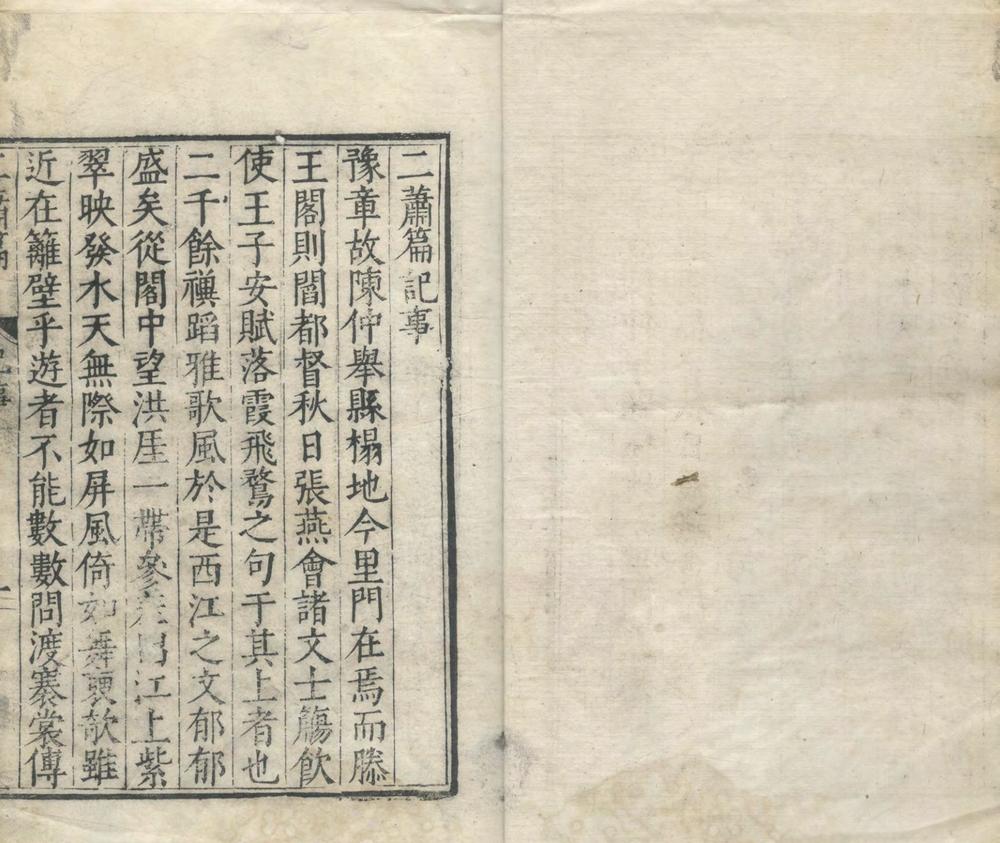 二蕭篇記事
豫章故陳仲舉縣榻地今里門在焉而滕
王閣則閻都督秋日張燕會諸文士觴飲
使王子安賦落霞飛鶩之句于其上者也
二千餘禩蹈雅歌風於是西江之文郁郁
盛矣從閣中望洪厓一帶參差出江上紫
翠映發水天無際如屏風倚如舞裏欹雖
近在籬壁乎遊者不能數數問渡褰裳傅
二蕭篇 記事 一